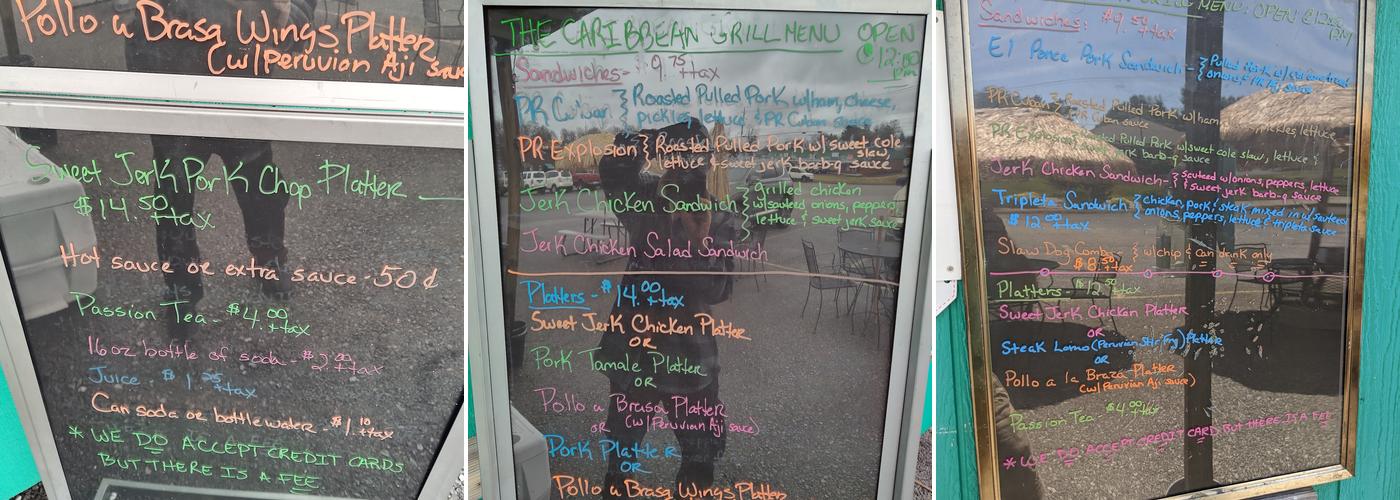 Pollo a Brasa Wings Platter
(w/Peruvian Aji sauce
Sweet Jerk Pork Chop Platter
$14.50 +tax
Hot sauce or extra sauce - 50¢
Passion Tea - $4.00 +tax
16 oz bottle of soda - $2.00 +tax
Juice - $1.25 +tax
Can soda or bottle water - $1.10 +tax
* WE DO ACCEPT CREDIT CARDS
BUT THERE IS A FEE
THE CARIBBEAN GRILL MENU OPEN
@ 12:00 pm
Sandwiches - $9.75 +tax
PR Cuban } Roasted Pulled Pork w/ham, cheese,
pickles, lettuce & PR Cuban sauce
PR Explosion } Roasted Pulled Pork w/sweet cole slaw,
lettuce & sweet jerk barb-q sauce
Jerk Chicken Sandwich } grilled chicken
w/sauteed onions, peppers,
lettuce & sweet jerk sauce
Jerk Chicken Salad Sandwich
Platters - $14.00 +tax
Sweet Jerk Chicken Platter
OR
Pork Tamale Platter
OR
Pollo a Brasa Platter
OR (w/Peruvian Aji sauce)
Pork Platter
OR
Pollo a Brasa Wings Platter
GRILL MENU: OPEN @ 12:00 PM
Sandwiches: $9.50 +tax
El Ponce Pork Sandwich - } Pulled Pork w/
onions & PR Aji sauce
PR Cuban } Roasted Pulled Pork w/ham, pickles, lettuce
Cuban sauce
PR Explosion } Roasted Pulled Pork w/sweet cole slaw, lettuce &
jerk barb-q sauce
Jerk Chicken Sandwich - } Sauteed w/onions, peppers, lettuce
& sweet jerk barb-q sauce
Tripleta Sandwich } chicken, pork & steak mixed in w/sauteed
$12.00 +tax onions, peppers, lettuce & tripleta sauce
Slaw Dog Combo - } w/chip & can drink only
$8.50 +tax
Platters - $12.50 +tax
Sweet Jerk Chicken Platter
OR
Steak Lomo (Peruvian Stir Fry) Platter
OR
Pollo a la Braza Platter
(w/ Peruvian Aji sauce)
Passion Tea $4.00 +tax
* WE DO ACCEPT CREDIT CARD BUT THERE IS A FEE